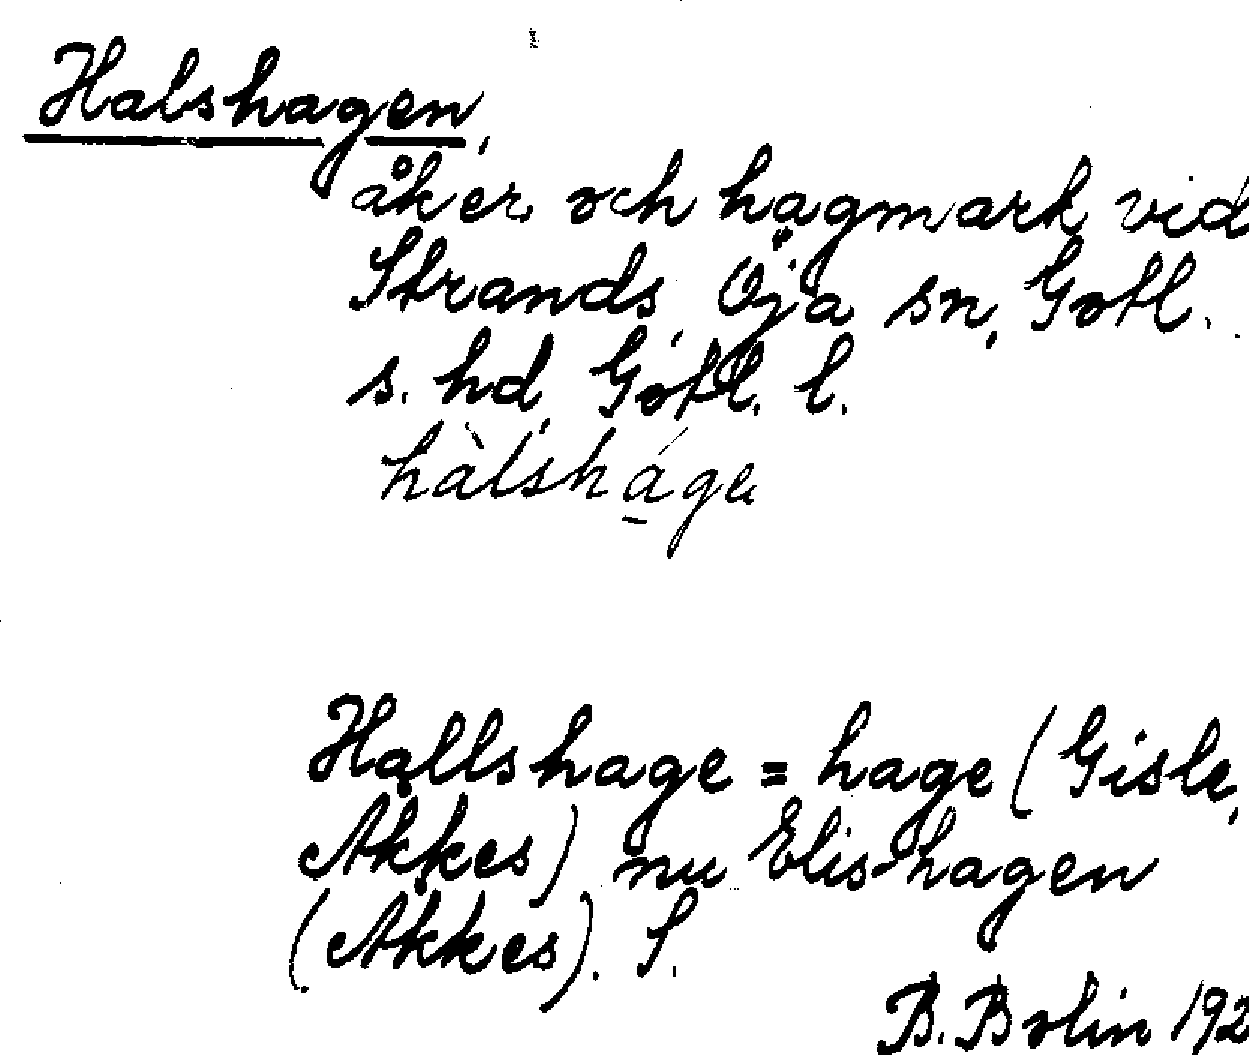 Halshagen,
åker och hagmark vid
Strands, Öja sn, Gotl.
s. hd, Gotl. l.
hàlshá̱ge
Hallshage = hage (Gisle,
Akkes) nu Elis-hagen
(Akkes). S.
B. Bolin 192